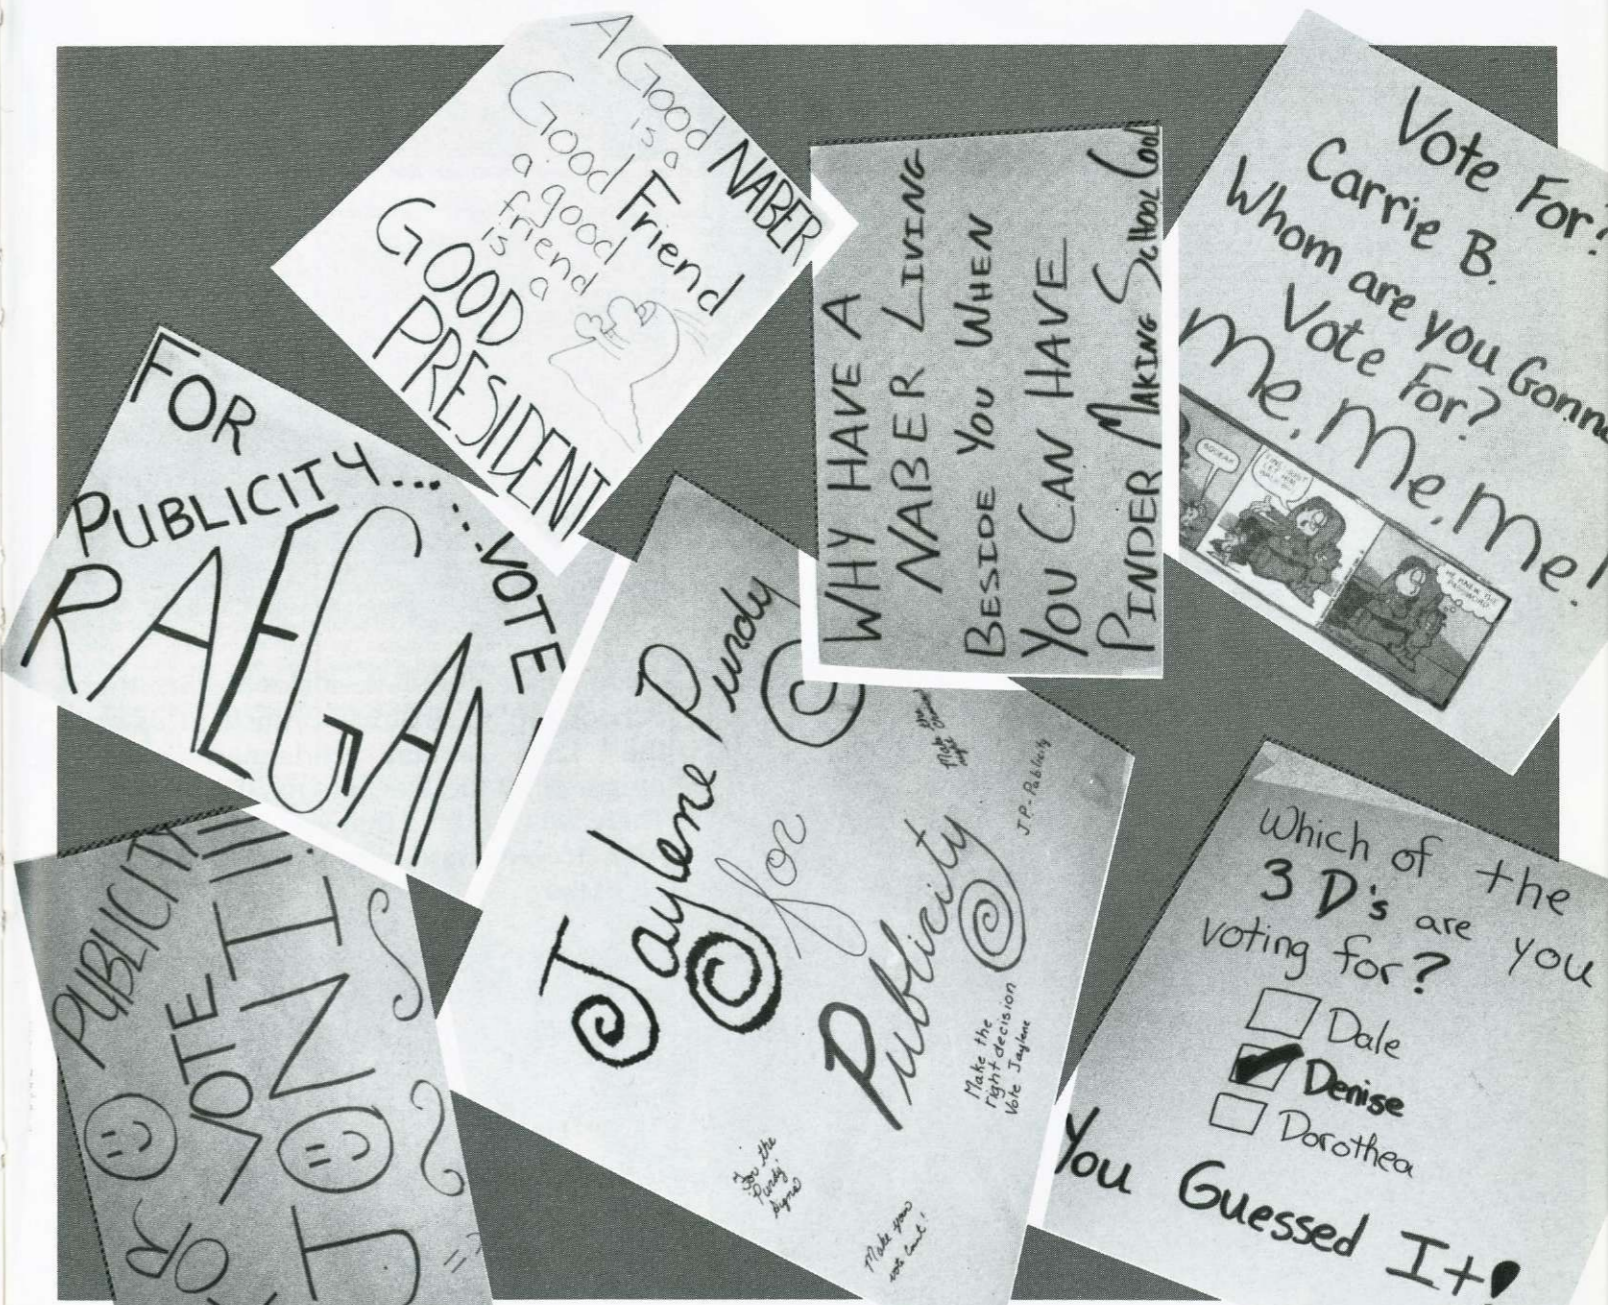 A Good NABER
is a
Good Friend
a good
friend
is a
GOOD
PRESIDENT
WHY HAVE A
NABER LIVING
BESIDE YOU WHEN
YOU CAN HAVE
PINDER MAKING SCHOOL COOL
Vote For?
Carrie B.
Whom are you Gonna
Vote For?
Me, Me, Me!
FOR
PUBLICITY.......VOTE
RAEGAN
Jaylene Purdy
for
Publicity
Make the
right
J.P.-Publicity
Make the
right decision
Vote Jaylene
for the
Purdy
signs
Make your
vote count!
PUBLICITY
FOR VOTE
JONI!!!
Which of the
3 D's are you
voting for?
Dale
Denise
Dorothea
You Guessed It!